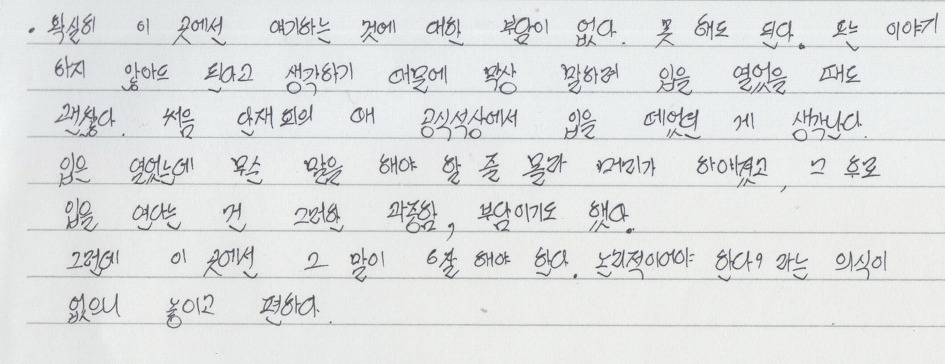 · 확실히 이 곳에선 얘기하는 것에 대한 부담이 없다. 못 해도 된다. 또는 이야기
하지 않아도 된다고 생각하기 때문에 막상 말하려 입을 열었을 때도
괜찮다. 처음 단재회의 때 공식석상에서 입을 떼었던 게 생각난다.
입은 열었는데 무슨 말을 해야 할 줄 몰라 머리가 하얘졌고, 그 후로
입을 연다는 건 그러한 과중함, 부담이기도 했다.
그런데 이 곳에선 그 말이 잘 해야 한다. 논리적이어야 한다? 라는 의식이
없으니 놓이고 편하다.